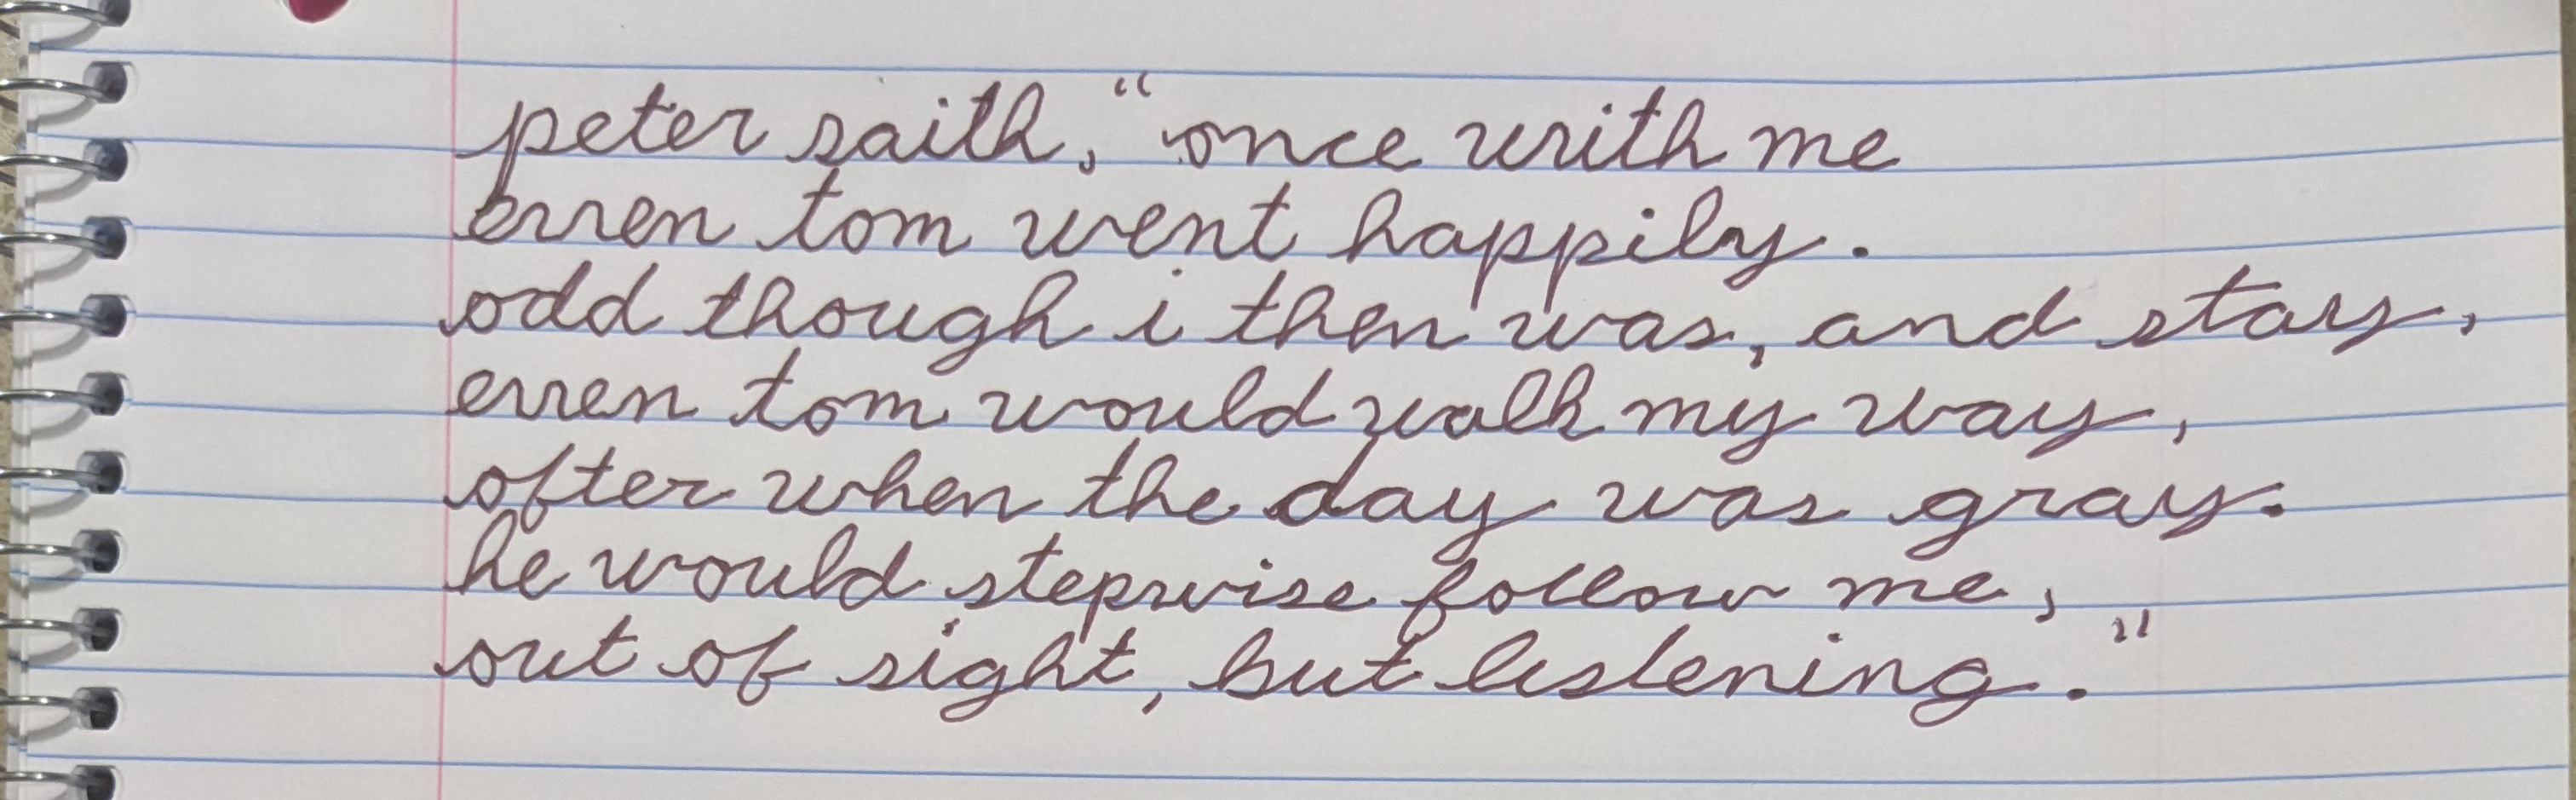 peter saith, “once with me
erren tom went happily.
odd though i then was, and stay,
erren tom would walk my way,
ofter when the day was gray.
he would stepwise follow me,
out of sight, but listening.”